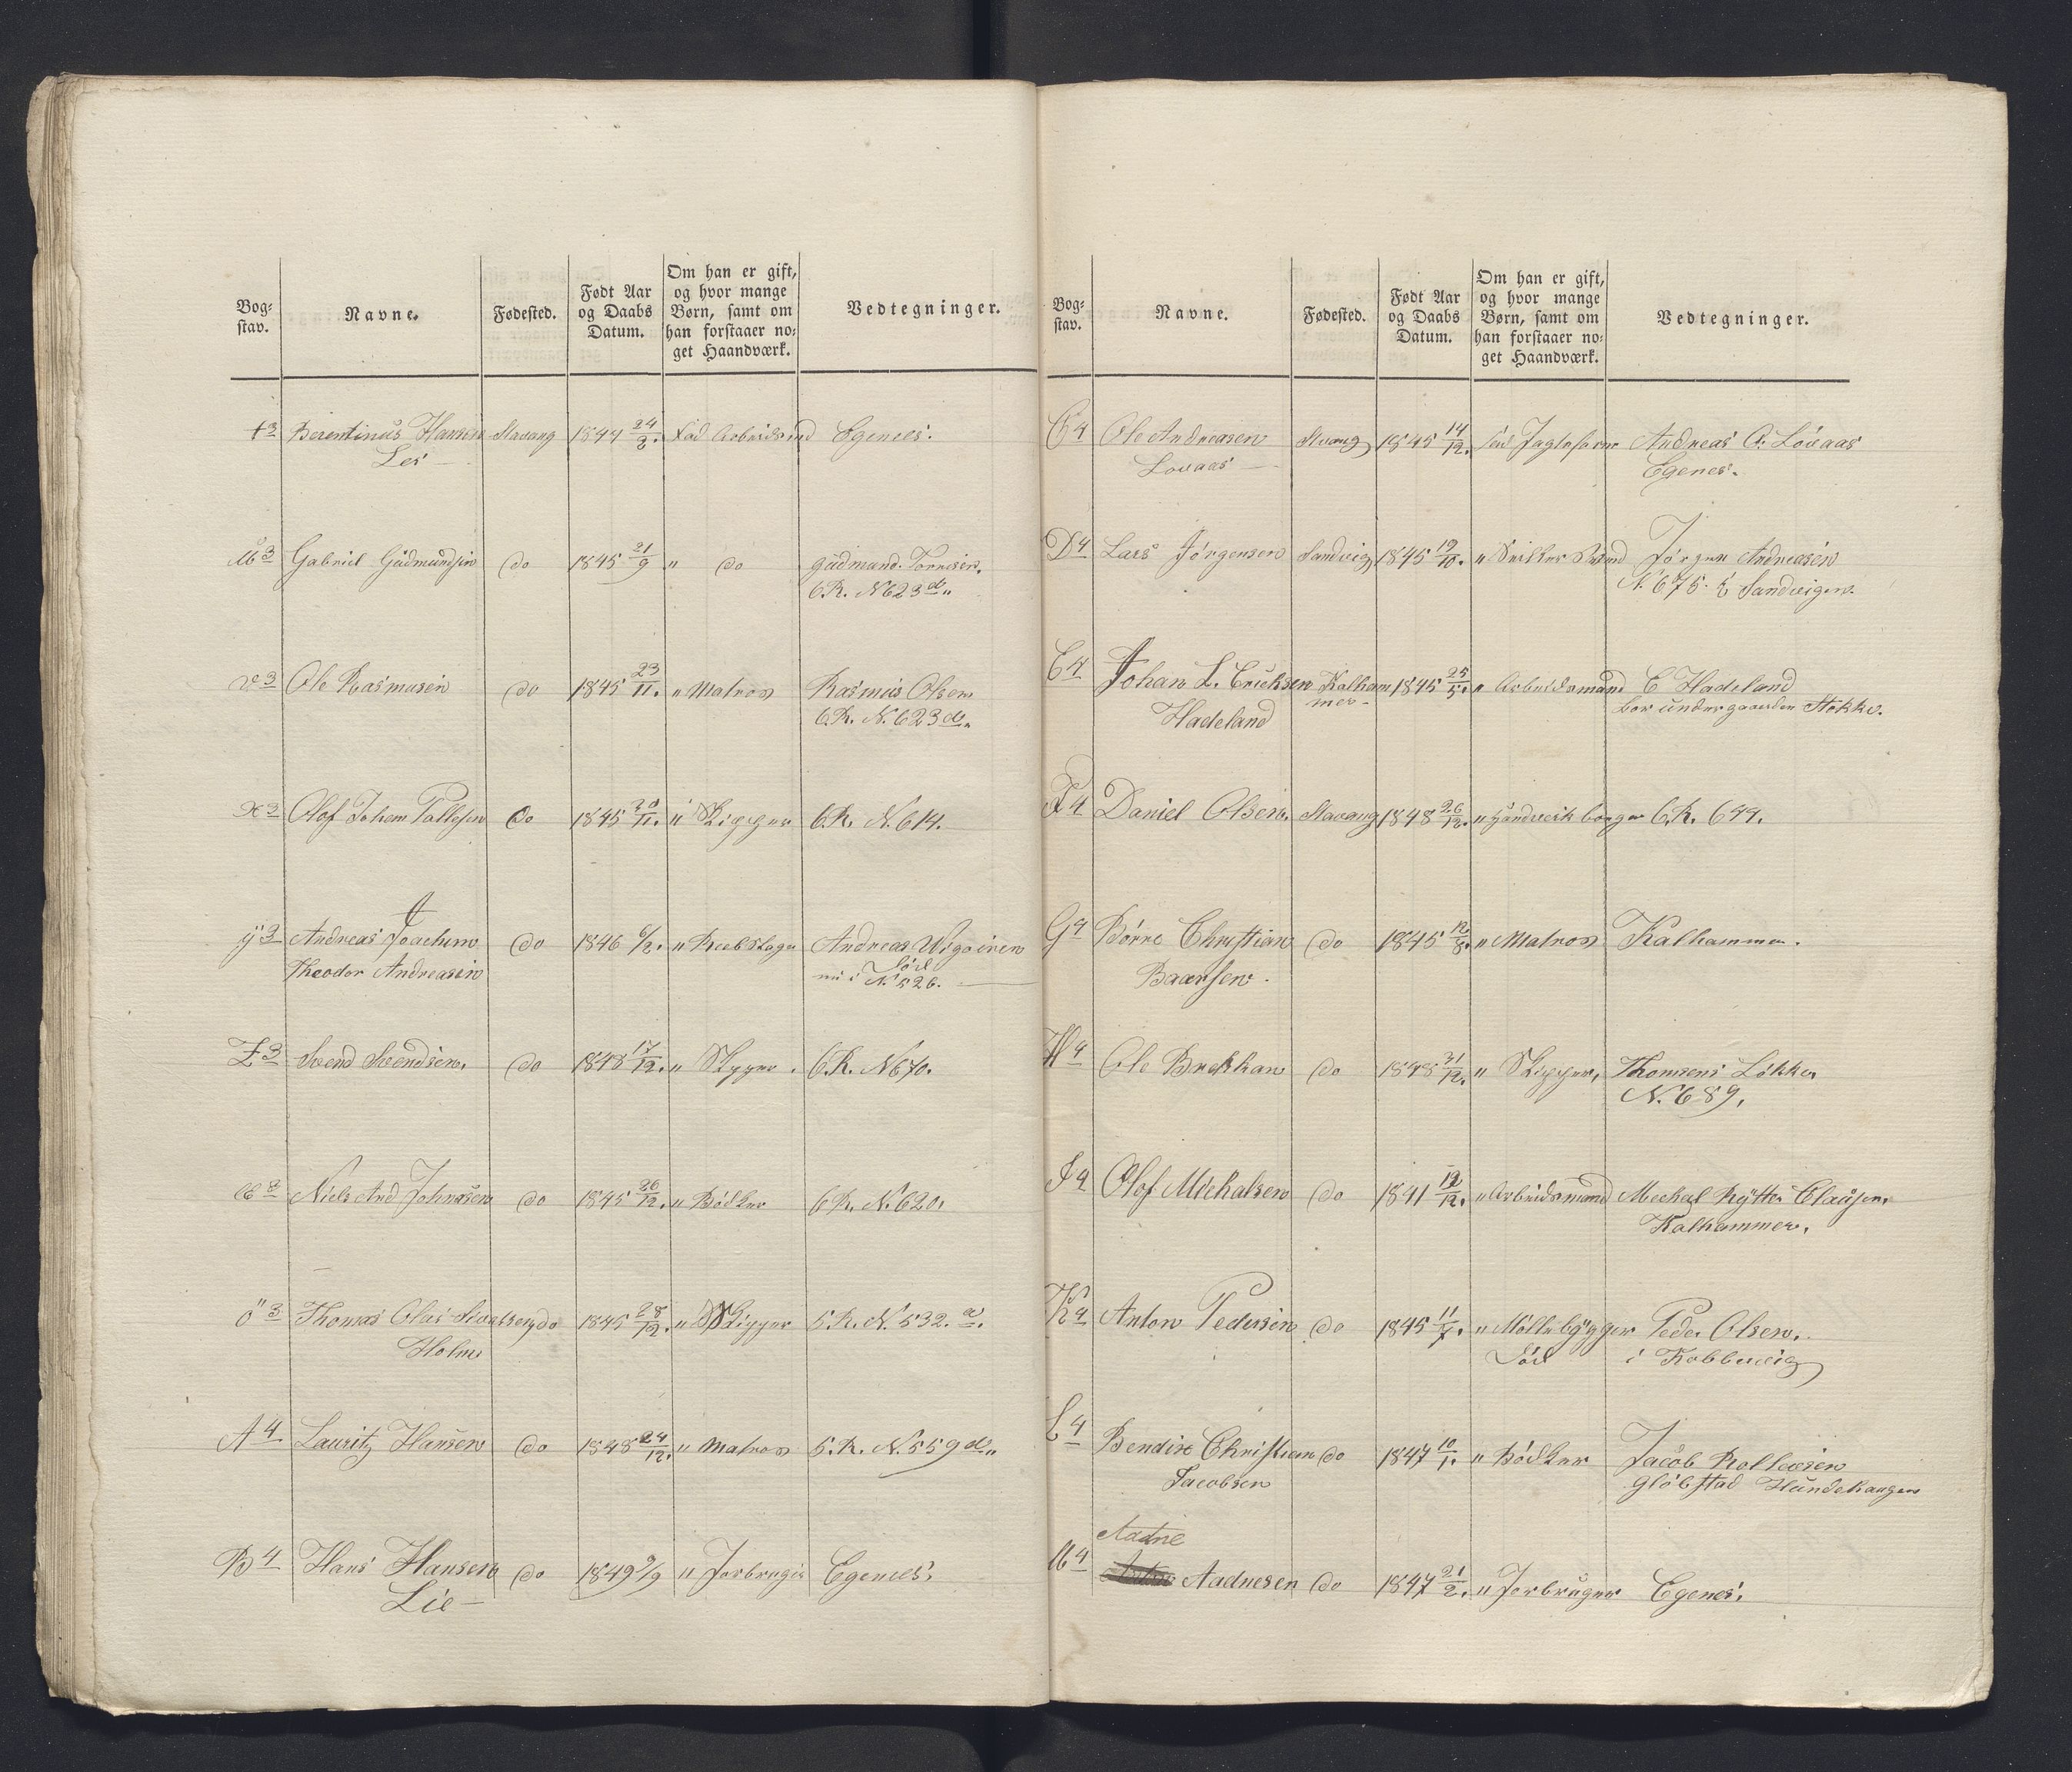 Bog-
stav.
Navne.
Fødested.
Født Aar
og Daabs
Datum.
Om han er gift,
og hvor mange
Børn, samt om
han forstaaer no-
get Haandværk.
Vedtegninger.
t3 Berentinus Hansen Stavang 1847 24/3. Arbeidsmd Egenees.
Lei
U3 Gabriel Gudmundsen do 1845 21/9 " do Gudmand Tørresen.
6.R. N 623 d"
V3 Ole Rasmusen do 1845 23/11. " Matros Rasmus Olsen
6.R. N. 623 d"
X3 Olof Johem Pallesen do 1845 30/11. " Skipper 6.R. N. 614.
y3 Andreas Joachim do 1846 6/2. " Reebslager Andreas
Theodor Andreasen nu i N. 526.
Z3 Svend Svendsen. do 1848 17/12. " Skipper. 6.R. N 670.
Æ3 Niels And Johnasen do 1845 26/12. " Bødker 6 R. N. 620.
ö3 Thomas Olai do 1845 28/12. " Skipper 5.R. N. 532. a.
Holm
A4 Lauritz Hansen do 1848 24/12. " Matros 5.R. N. 559 d"
B4 Hans Hansen do 1849 9/9 " Jorbruger Egenees.
Lie
Bog-
stav.
Navne.
Fødested.
Født Aar
og Daabs
Datum.
Om han er gift,
og hvor mange
Børn, samt om
han forstaaer no-
get Haandværk.
Vedtegninger.
C4 Ole Andreasen Stvang 1845 14/12. Andreas A. Lovaas
Lovaas Egenes.
D4 Lars Jørgensen Sandvig 1845 19/10. " Jørgen Andreasen
N. 675. i Sandvigen.
E4 Johan L. Ericksen Kalham 1845 25/5. " Arbeidsmand E Hadeland
Hadeland mer bor under gaarden Stokke.
F4 Daniel Olsen. Stavang 1848 26/12. " Handverk borger 6.R. 699.
G4 Børre Christian do 1845 12/8. " Matros Kalhammer.
Baarsen.
H4 Ole Brekhan do 1848 31/12. " Skipper, Thomsens Løkke
N. 689.
I4 Olof Michalsen do 1841 12/12. " Arbeidsmand Mechal Rytter Clausen.
Kalhammer.
K4 Anton Pedersen do 1845 11/7. " Møllebygger Peder Olsen.
Søn i Kobbevig
L4 Bendix Christian do 1847 10/1. " Bødker Jacob Rollevsen
Jacobsen Hundehaugen
Aadne
M4 Aadnesen do 1847 21/2. " Jorbruger Egenes.